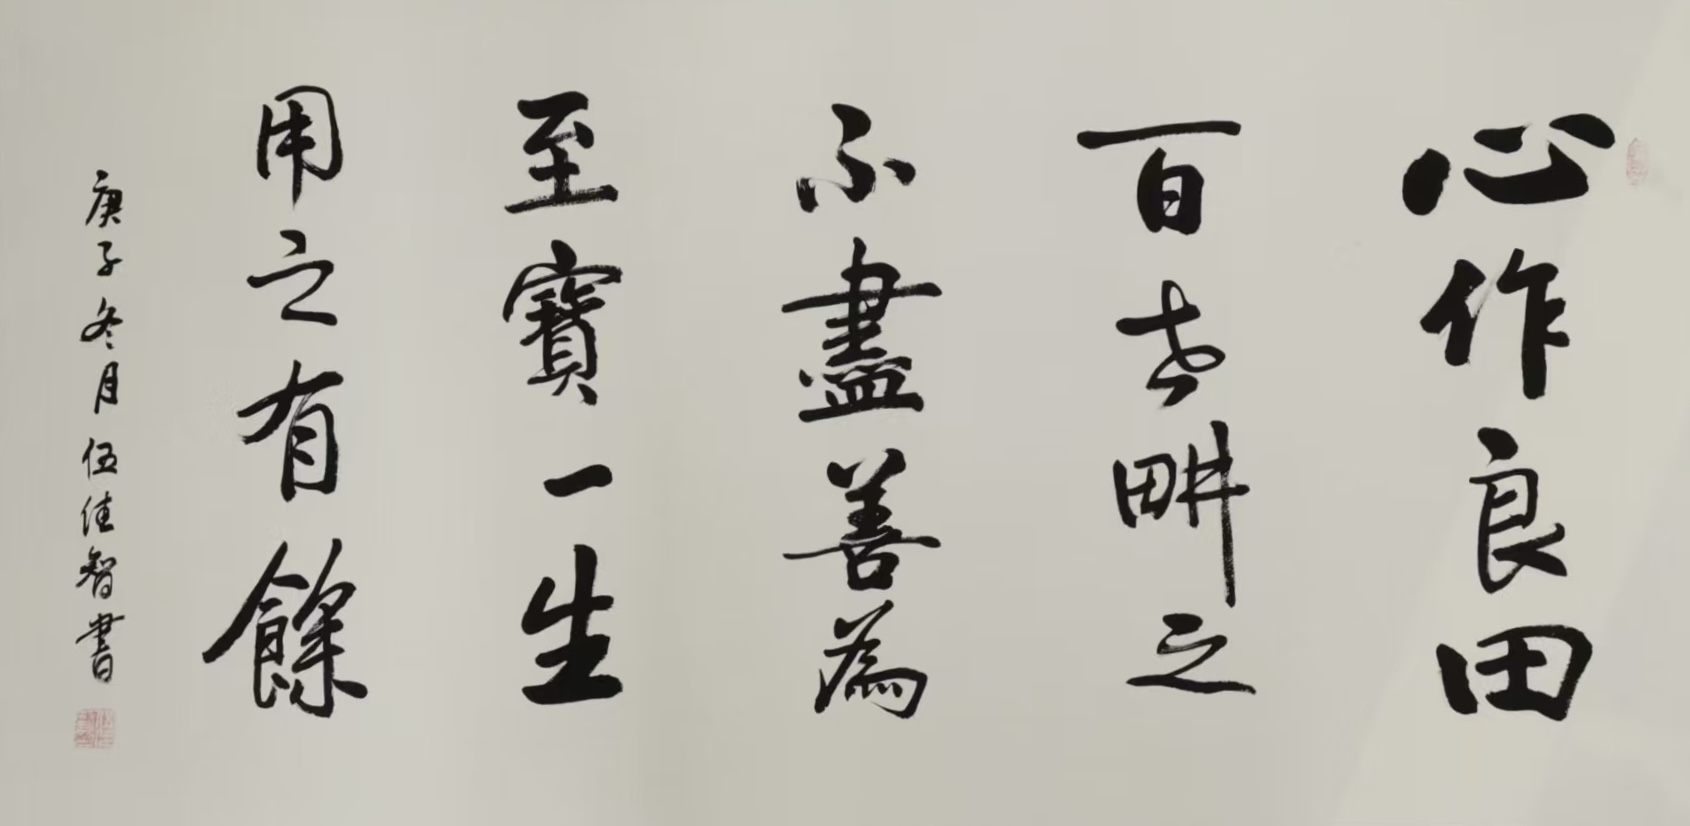 心作良田
百世畊之
不盡善為
至寶一生
用之有餘
庚子冬月伍佳智書